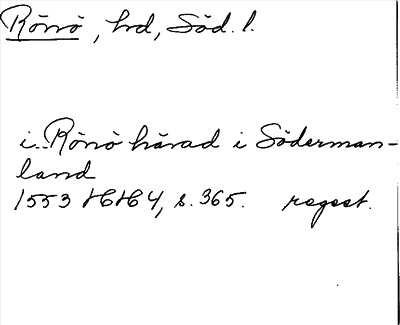 Rönö, hd, Söd. l.
i Rönö härad i Söderman-
land
1553 HH 4, s. 365. regest.